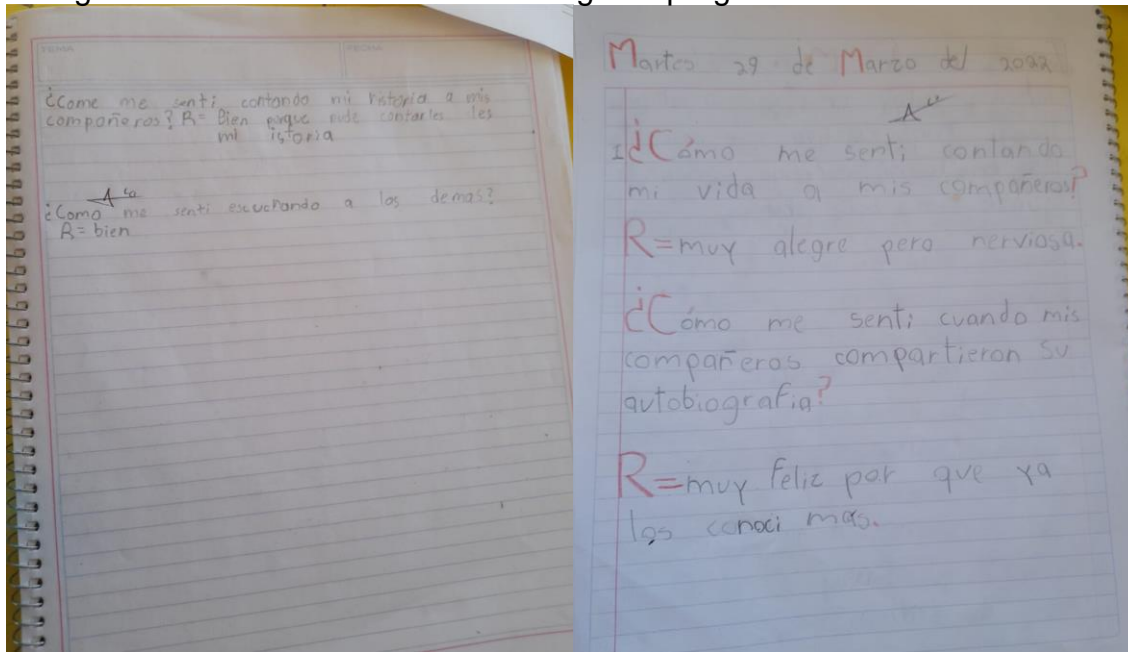 TEMA
FECHA
¿Come me senti contando mi historia a mis
compañeros? R= Bien porque pude contarles les
mi istoria
¿Como me senti escuchando a los demas?
R= bien
Martes 29 de Marzo del 2022
1 ¿Cómo me senti contando
mi vida a mis compañeros?
R=muy alegre pero nerviosa.
¿Cómo me senti cuando mis
compañeros compartieron su
autobiografia?
R=muy feliz por que ya
los conoci mas.